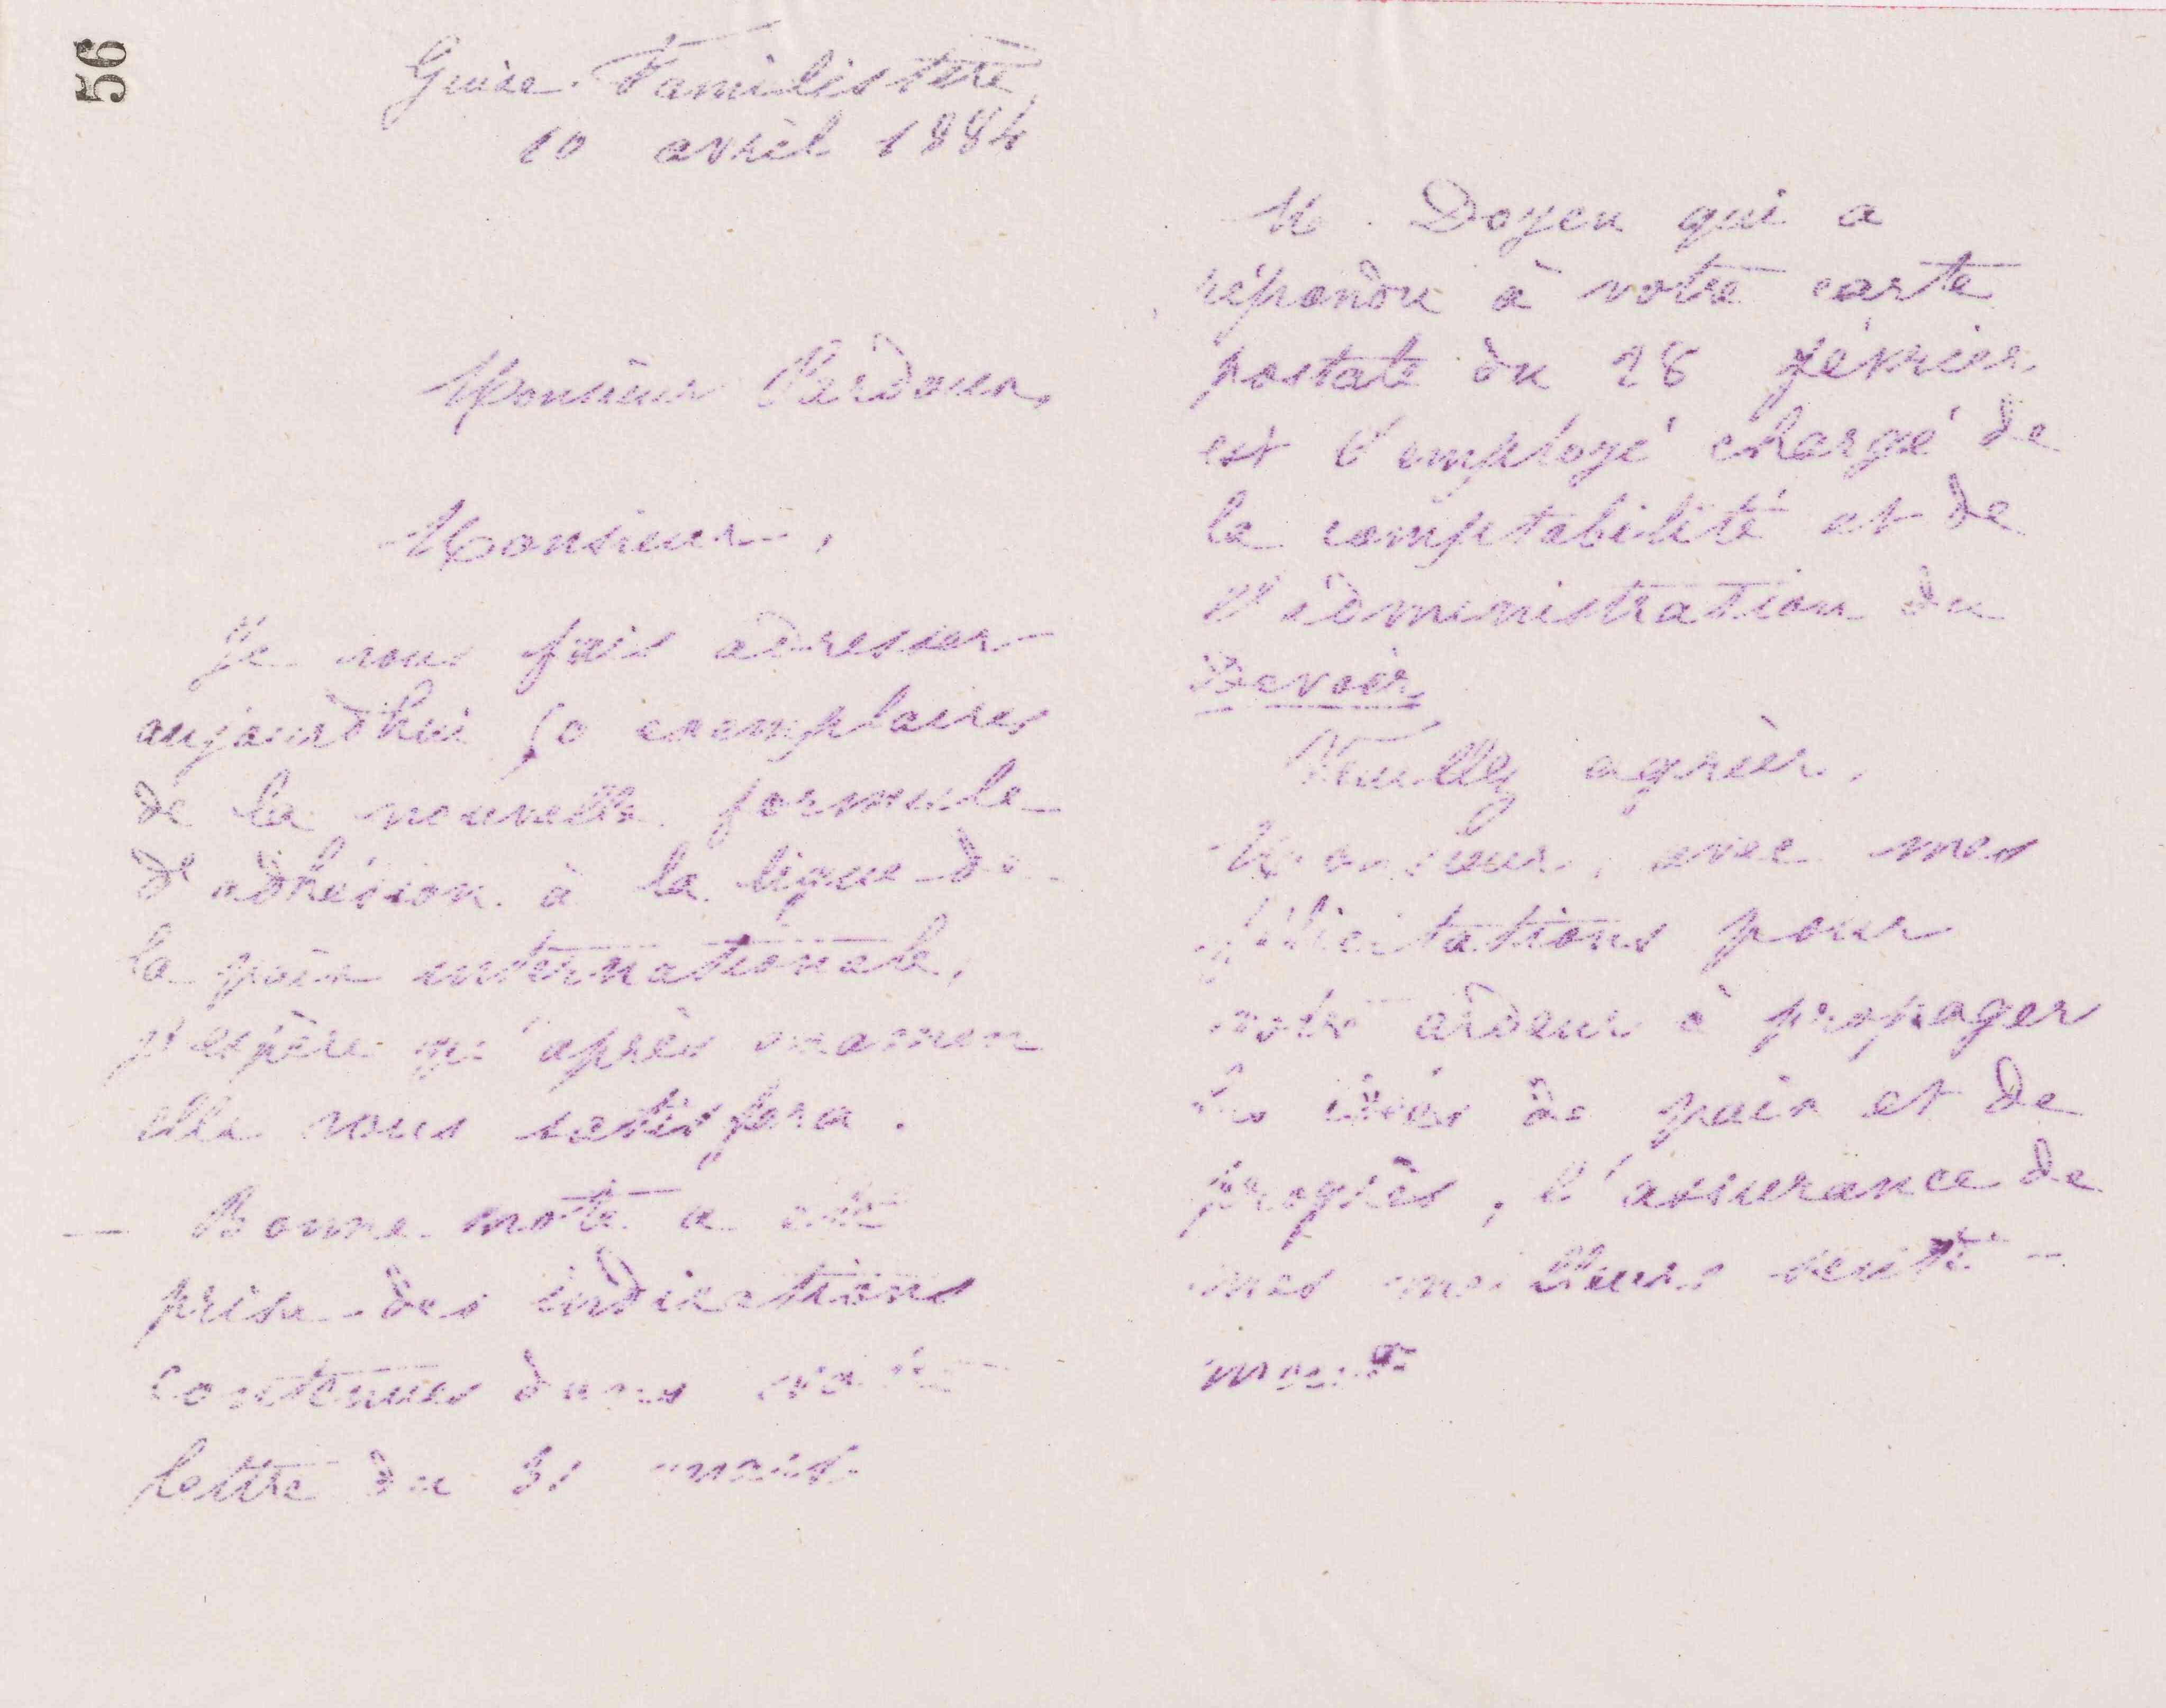 56
Guise. Familistère
10 avril 1884
Monsieur Pardoux,
Monsieur,
Je vous fais adresser
aujourd'hui 50 exemplaires
de la nouvelle formule
d'adhésion à la ligue de
la paix internationale,
j'espère qu'après examen
elle vous satisfera.
— Bonne note a été
prise des indications
contenues dans votre
lettre du 31 mars.
M. Doyen qui a
répondu à votre carte
postale du 28 février
est l'employé chargé de
la comptabilité et de
l'administration du
Devoir.
Veuillez agréer,
Monsieur, avec mes
félicitations pour
votre ardeur à propager
les idées de paix et de
progrès, l'assurance de
mes meilleurs senti-
ments